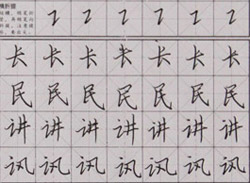 横折提
㇊ ㇊ ㇊ ㇊ ㇊ ㇊
长 长 长 长 长 长 长
民 民 民 民 民 民 民
讲 讲 讲 讲 讲 讲 讲
讽 讽 讽 讽 讽 讽 讽